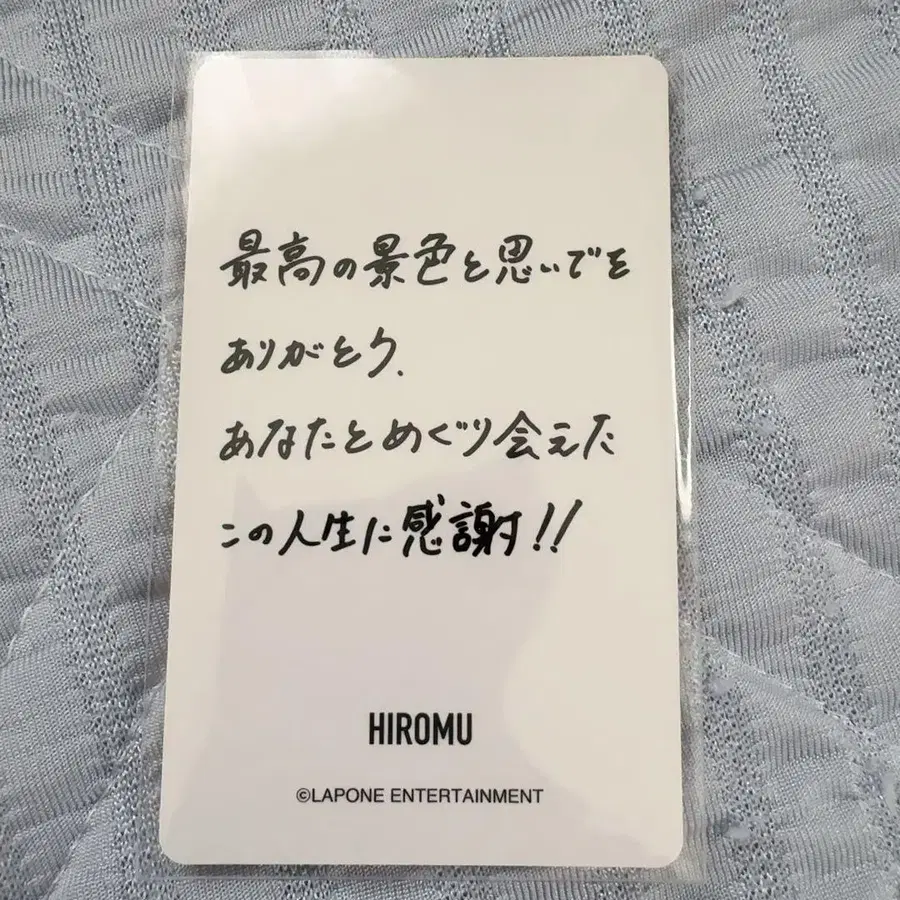 最高の景色と思いでを
ありがとう.
あなたとめぐり会えた
この人生に感謝!!
HIROMU
©LAPONE ENTERTAINMENT